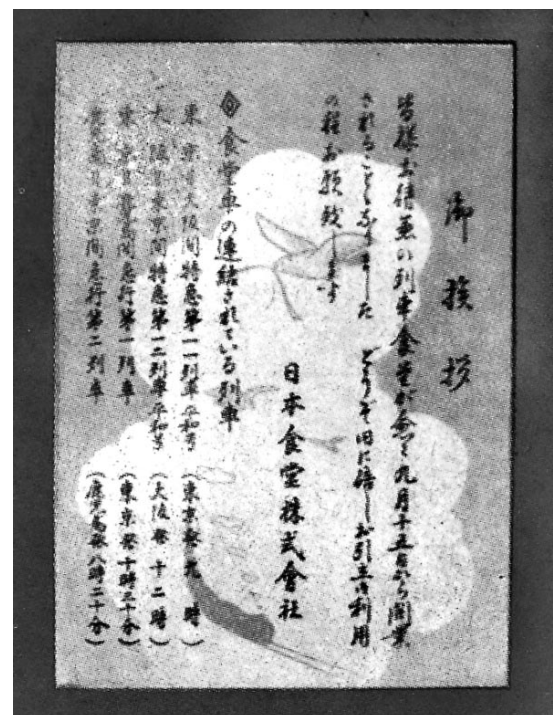 御挨拶
皆様お待兼の列車食堂が愈々九月十五日から開業
されることになりました どうぞ旧に倍しお引立御利用
の程お願致します
日本食堂株式會社
食堂車の連結されている列車
東京大阪間特急第一一列車平和号（東京發九時）
大阪東京間特急第一二列車平和号（大阪發十二時）
東京鹿児島間急行第一列車（東京發十時三十分）
鹿児島東京間急行第二列車（鹿児島發八時二十分）